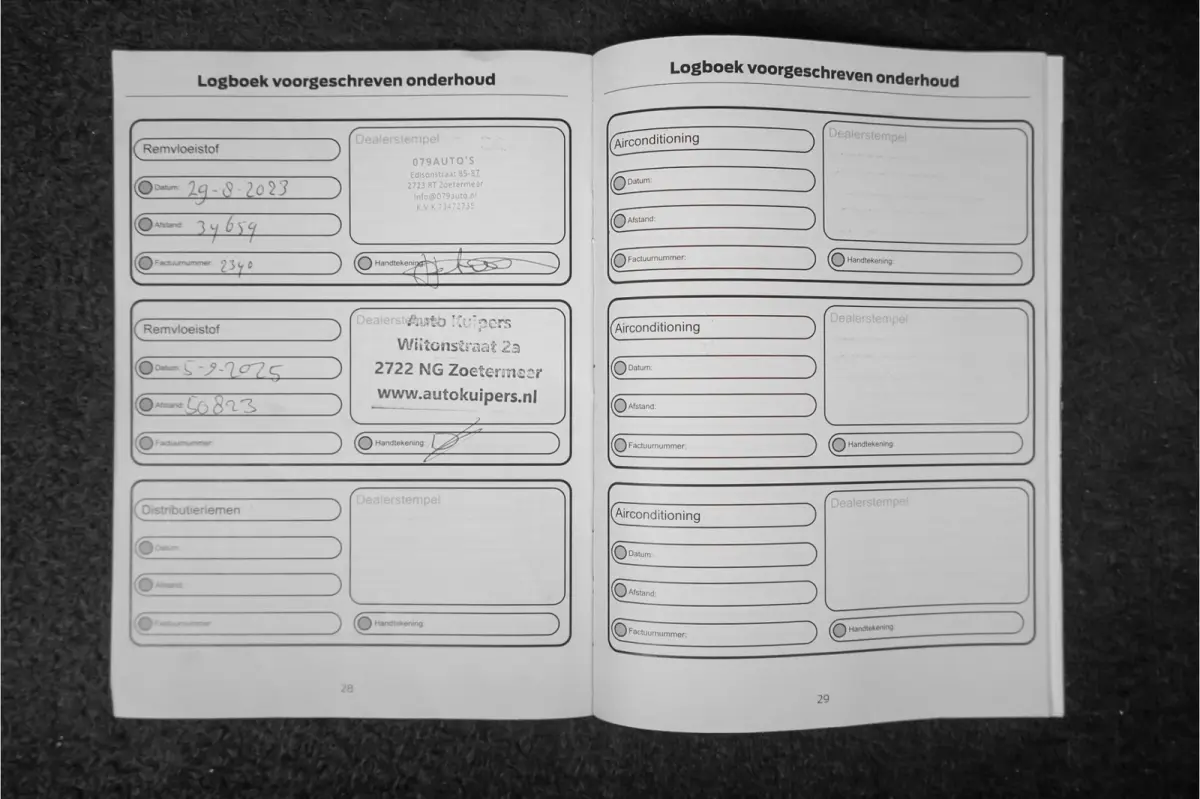 Logboek voorgeschreven onderhoud
Remvloeistof
Datum: 29-8-2023
Afstand: 34659
Factuurnummer: 2340
Dealerstempel
079AUTO'S
Edisonstraat 85-87
2723 RT Zoetermeer
info@079auto.nl
K.V.K.
Handtekening:
Remvloeistof
Datum: 5-9-2025
Afstand: 50823
Factuurnummer:
Dealerstempel
Auto Kuipers
Wiltonstraat 2a
2722 NG Zoetermeer
www.autokuipers.nl
Handtekening:
Distributieriemen
Datum:
Afstand:
Factuurnummer:
Dealerstempel
Handtekening:
28
Logboek voorgeschreven onderhoud
Airconditioning
Datum:
Afstand:
Factuurnummer:
Dealerstempel
Handtekening:
Airconditioning
Datum:
Afstand:
Factuurnummer:
Dealerstempel
Handtekening:
Airconditioning
Datum:
Afstand:
Factuurnummer:
Dealerstempel
Handtekening:
29